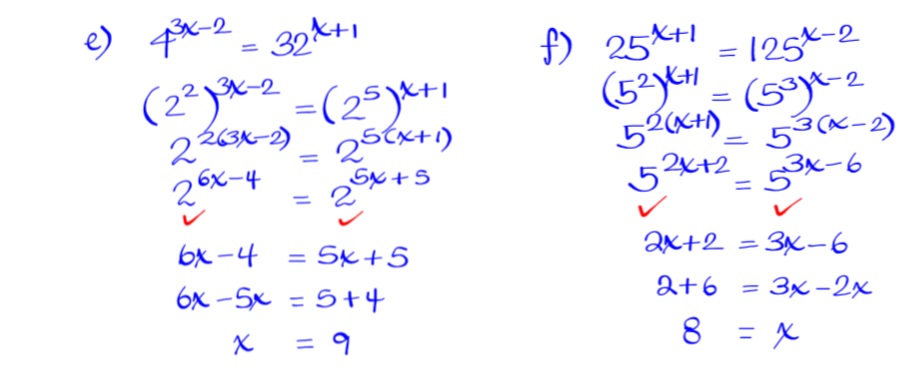 e) 4^{3x-2} = 32^{x+1}
(2^2)^{3x-2} = (2^5)^{x+1}
2^{2(3x-2)} = 2^{5(x+1)}
2^{6x-4} = 2^{5x+5}
✓ ✓
6x-4 = 5x+5
6x-5x = 5+4
x = 9
f) 25^{x+1} = 125^{x-2}
(5^2)^{x+1} = (5^3)^{x-2}
5^{2(x+1)} = 5^{3(x-2)}
5^{2x+2} = 5^{3x-6}
✓ ✓
2x+2 = 3x-6
2+6 = 3x-2x
8 = x